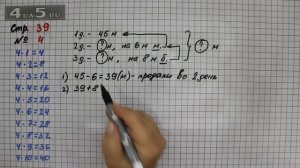 4DS.ru
Стр. 39
№ 4
4 · 1 = 4
4 · 2 = 8
4 · 3 = 12
4 · 4 = 16
4 · 5 = 20
4 · 6 = 24
4 · 7 = 28
4 · 8 = 32
4 · 9 = 36
4 · 10 = 40
1 д. - 45 м
2 д. - ? м, на 6 м м.
3 д. - ? м, на 8 м б.
? м
1) 45 - 6 = 39 (м) - во 2 день
2) 39 + 8